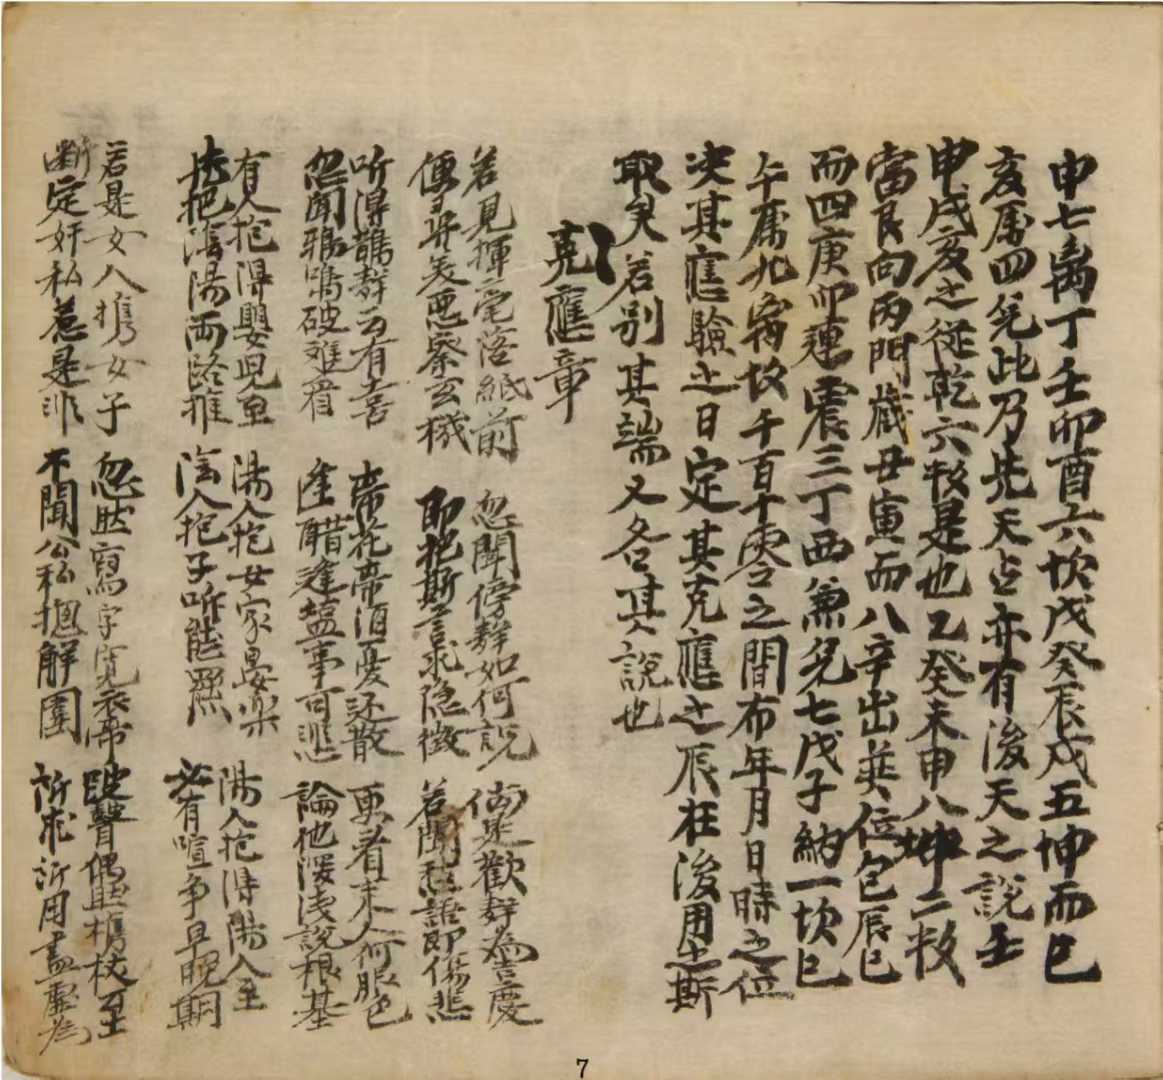 申七离丁壬卯酉六坎戊癸辰戌五坤而巳
亥屬四矣此乃先天占亦有後天之說壬
申戌亥之從乾六数是也乙癸未申八坤二数
當艮向丙門歲丑寅而八辛出巽位包辰巳
而四庚卯連震三丁酉兼兌七戊子納一坎巳
午屬北宿故千百十零之間布年月日時之位
决其應驗之日定其克應之辰在後用之斯
取矣若别其端又各其說也
克應章
若見揮毫落紙前 忽聞傍群如何說 倘是歡群為吉慶
便尋矣惡察玄機 即把斯言求隐微 若聞秘語即傷悲
听得鵲群云有喜 帶花帶酒憂还散 更看来人何服色
忽聞鴉鳴破难看 逢醋逢塩事可悲 論他深浅說根基
有人抱得嬰児至 陽人抱女家晏樂 陽人抱得陽人至
先把陰陽両路推 陰人抱子听能熙 必有喧争早晚期
若是女人携女子 忽然寫字寬衣帶 跛聾偶與携杖至
断定奸私惹是非 不聞公私捴解圍 所求所用盡虚為
7